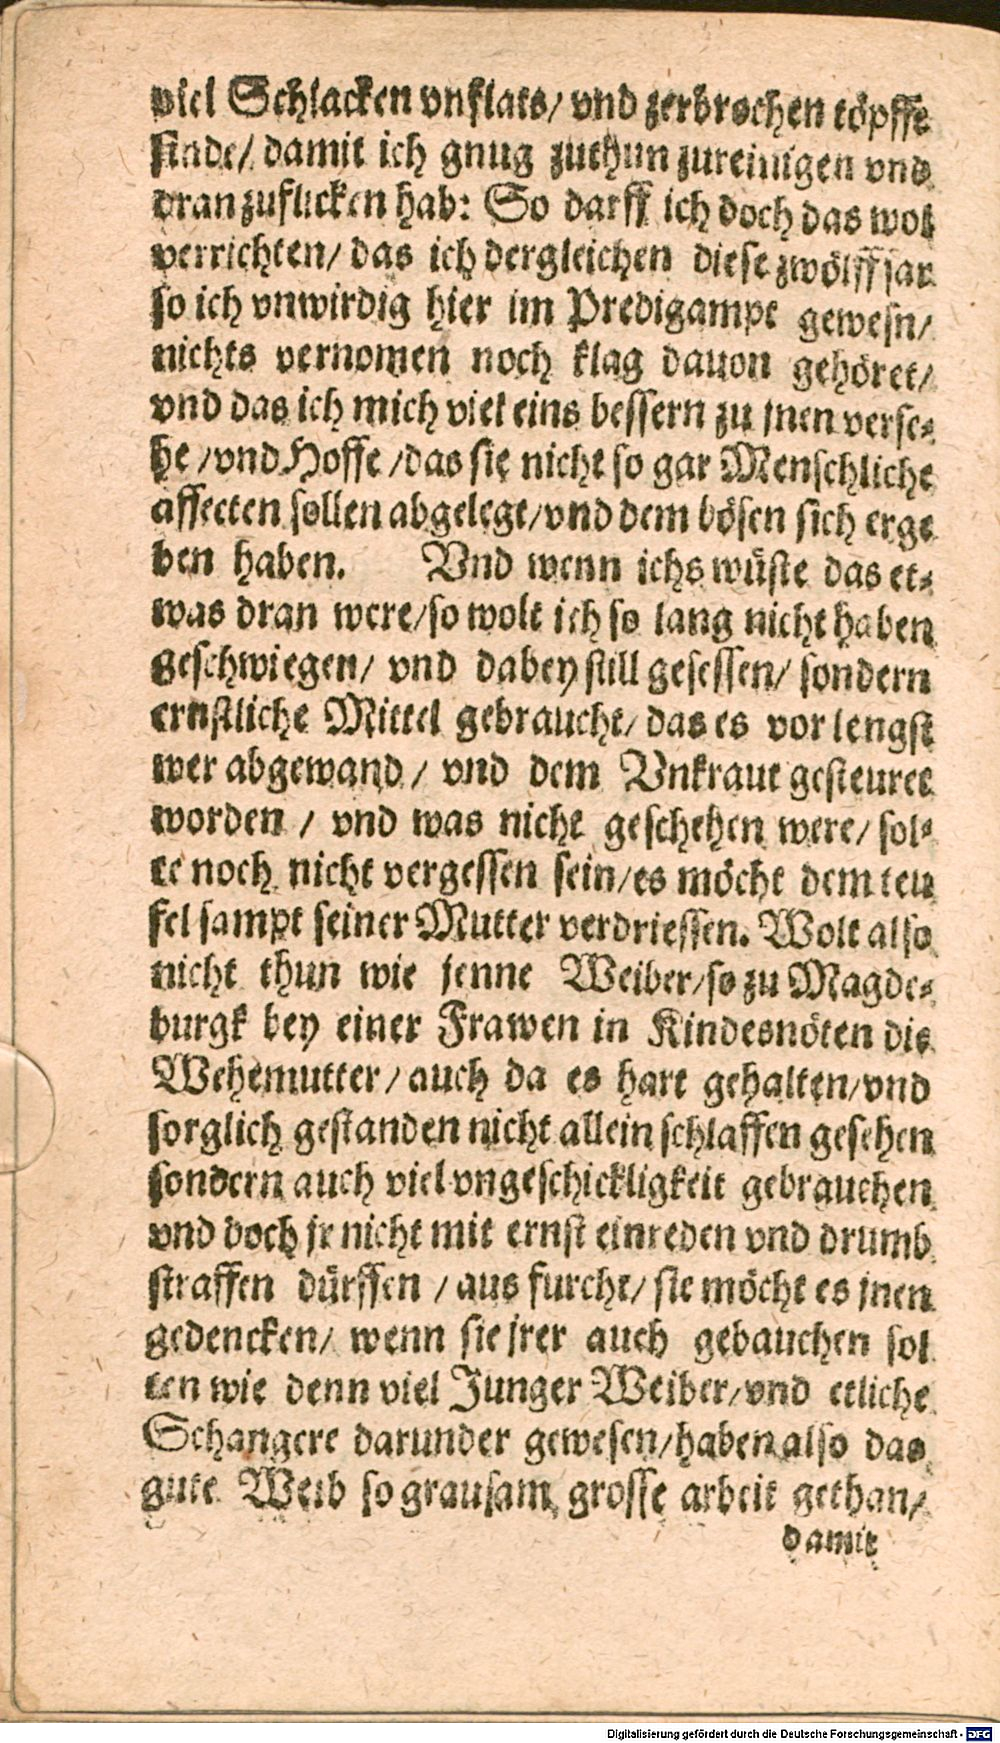 viel Schlacken vnflats/ vnd zerbrochen töpffe
finde/ damit ich gnug zuthun zureinigen vnd
dran zuflicken hab: So darff ich doch das wol
verrichten/ das ich dergleichen diese zwölff jar
so ich vnwirdig hier im Predigampt gewesn/
nichts vernomen noch klag dauon gehöret/
vnd das ich mich viel eins bessern zu jnen verse-
he /vnd Hoffe /das sie nicht so gar Menschliche
affecten sollen abgelegt/vnd dem bösen sich erge
ben haben. Vnd wenn ichs wüste das et-
was dran were/so wolt ich so lang nicht haben
geschwiegen/ vnd dabey still gesessen/ sondern
ernstliche Mittel gebraucht/ das es vor lengst
wer abgewand / vnd dem Vnkraut gesteuret
worden / vnd was nicht geschehen were/ sol-
te noch nicht vergessen sein/es möcht dem teu
fel sampt seiner Mutter verdriessen. Wolt also
nicht thun wie jenne Weiber/so zu Magde-
burgk bey einer Frawen in Kindesnöten die
Wehemutter/ auch da es hart gehalten/vnd
sorglich gestanden nicht allein schlaffen gesehen
sondern auch viel vngeschickligkeit gebrauchen
vnd doch jr nicht mit ernst einreden vnd drumb
straffen dürffen / aus furcht/ sie möcht es jnen
gedencken/ wenn sie jrer auch gebauchen sol
ten wie denn viel Junger Weiber/vnd etliche
Schangere darunder gewesen/haben also das
gute Weib so grausam grosse arbeit gethan/
damit
Digitalisierung gefördert durch die Deutsche Forschungsgemeinschaft - DFG